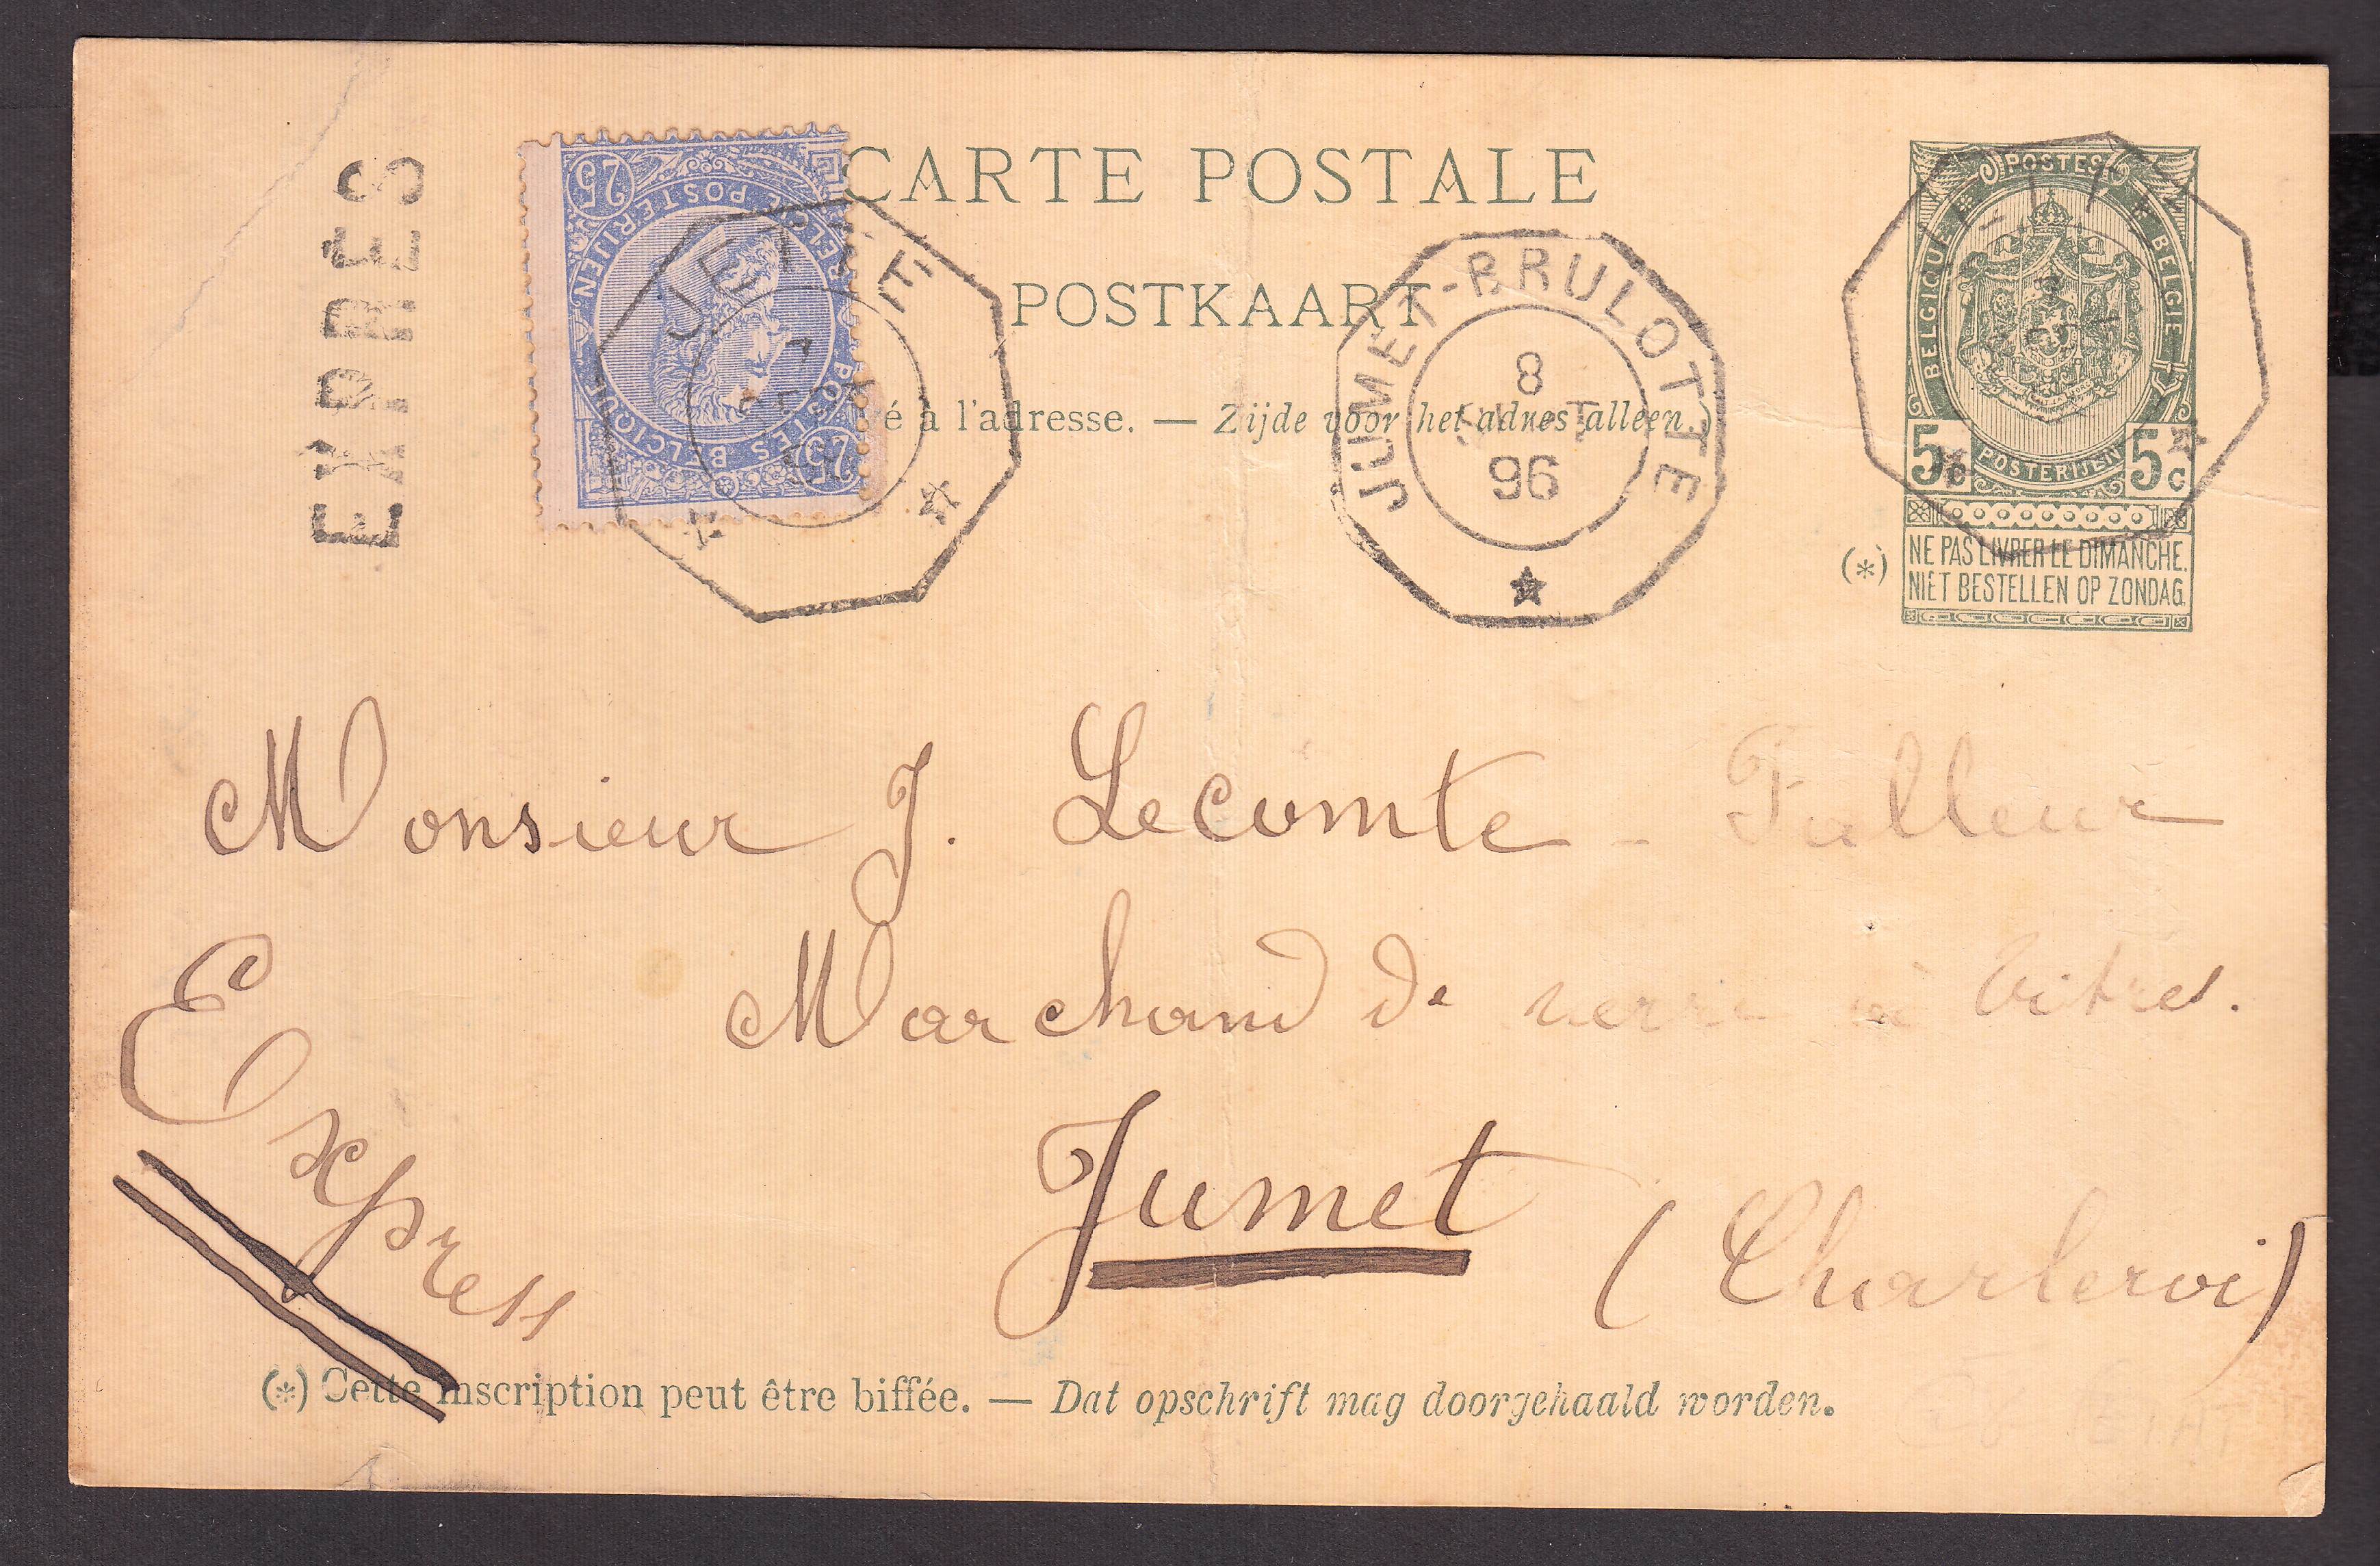 EXPRÈS
CARTE POSTALE
POSTKAART
é à l'adresse. — Zijde voor het adres alleen.)
25 BELGIQUE POSTES 25
BELGIË POSTERIJEN
JETTE
JUMET-BRULOTTE
8
96
POSTES
BELGIQUE BELGIE
5c POSTERIJEN 5c
(*) NE PAS LIVRER LE DIMANCHE.
NIET BESTELLEN OP ZONDAG.
Monsieur J. Lecomte - Falleur
Marchand de verre à Vitres.
Express
Jumet (Charleroi)
(*) Cette inscription peut être biffée. — Dat opschrift mag doorgehaald worden.